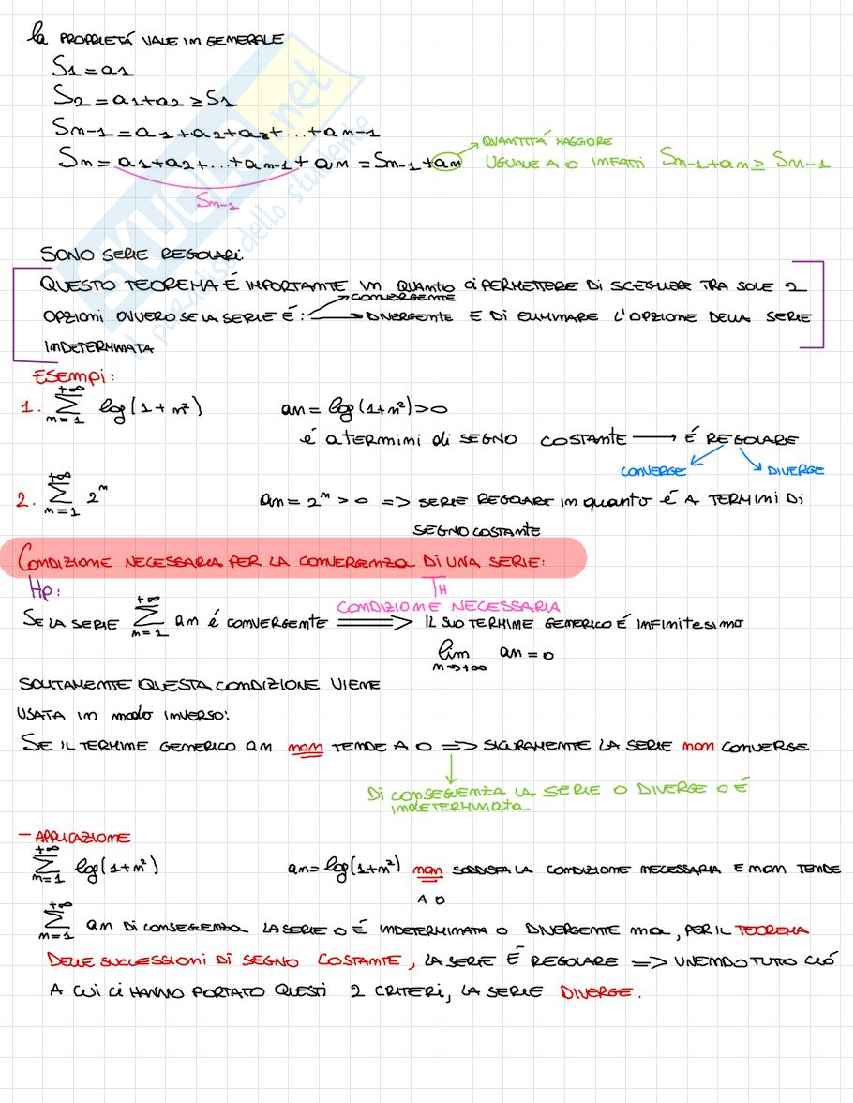 La PROPRIETÁ VALE IN GENERALE
S1 = a1
S2 = a1+a2 ≥ S1
Sn-1 = a1+a2+a3+...+an-1
Sn = a1+a2+...+an-1+an = Sn-1+an QUANTITÁ MAGGIORE
UGUALE A 0 INFATTI Sn-1+an ≥ Sn-1
Sn-1
SKUOLA.net
il paradiso dello studente
SONO SERIE REGOLARI.
QUESTO TEOREMA É IMPORTANTE IN QUANTO CI PERMETTERE DI SCEGLIERE TRA SOLE 2
CONVERGENTE
OPZIONI OVVERO SE LA SERIE É: DIVERGENTE E DI ELIMINARE L'OPZIONE DELLA SERIE
INDETERMINATA
ESEMPI:
1. +∞ Σ n=1 log(1+n²) an = log(1+n²)>0
é a TERMINI di SEGNO COSTANTE → É REGOLARE
CONVERGE DIVERGE
2. +∞ Σ n=1 2^n an = 2^n > 0 => SERIE REGOLARE in quanto é A TERMINI DI
SEGNO COSTANTE
CONDIZIONE NECESSARIA PER LA CONVERGENZA DI UNA SERIE:
Hp: TH
CONDIZIONE NECESSARIA
SE LA SERIE +∞ Σ n=1 an é CONVERGENTE ⟹ IL SUO TERMINE GENERICO É INFINITESIMO
lim n→+∞ an = 0
SOLITAMENTE QUESTA CONDIZIONE VIENE
USATA IN modo INVERSO:
SE IL TERMINE GENERICO an non TENDE A 0 => SICURAMENTE LA SERIE non CONVERGE
DI CONSEGUENZA LA SERIE O DIVERGE O É
INDETERMINATA
- APPLICAZIONE
+∞ Σ n=1 log(1+n²) an = log(1+n²) non SODDISFA LA CONDIZIONE NECESSARIA E NON TENDE
A 0
+∞ Σ n=1 an DI CONSEGENZA LA SERIE O É INDETERMINATA O DIVERGENTE ma, PER IL TEOREMA
DELLE SUCCESSIONI DI SEGNO COSTANTE, LA SERIE É REGOLARE => UNENDO TUTTO CIÓ
A CUI CI HANNO PORTATO QUESTI 2 CRITERI, LA SERIE DIVERGE.